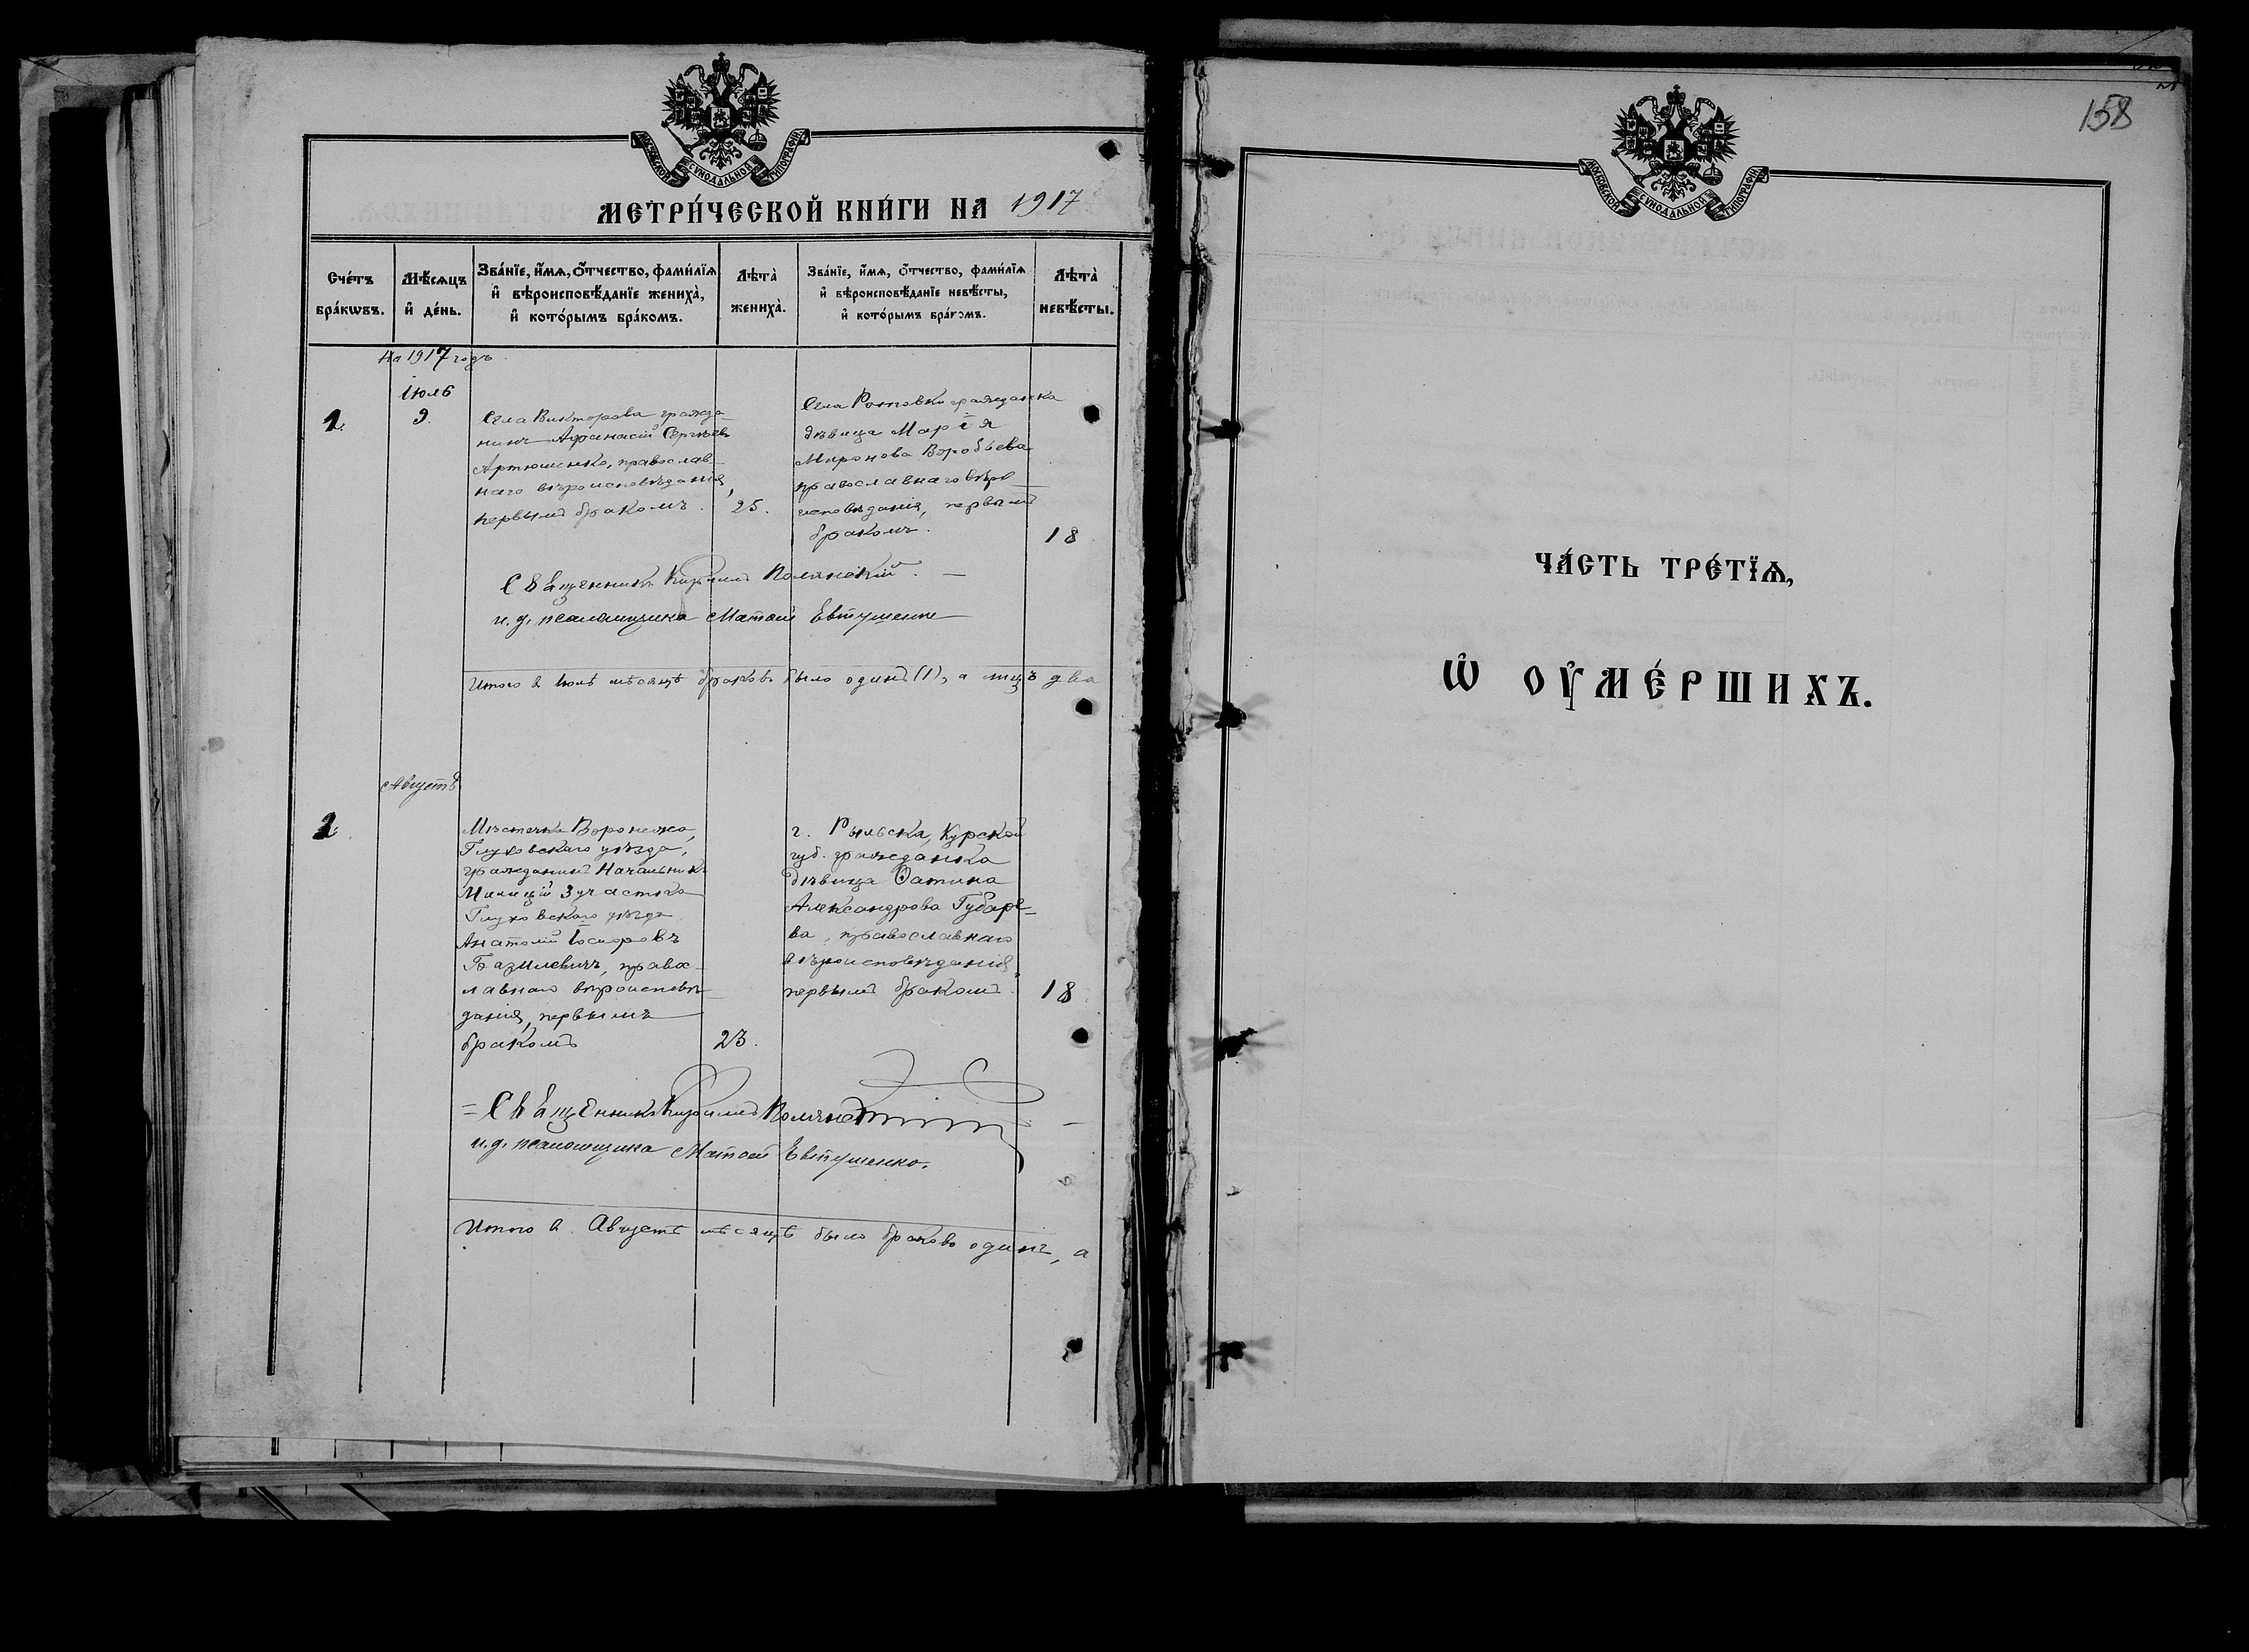 МОСКОВСКОЙ СѴНОДАЛЬНОЙ ТИПОГРАФІИ
МЕТРИ́ЧЕСКОЙ КНИ́ГИ НА 1917
Сче́тъ бра́кѡвъ.
Мѣ́сѧцъ и҆ де́нь.
Зва́нїе, и҆́мѧ, ѻ҆́тчество, фами́лїѧ и҆ вѣроисповѣ́данїе жениха̀, и҆ кото́рымъ бра́комъ.
Лѣта̀ жениха̀.
Зва́нїе, и҆́мѧ, ѻ҆́тчество, фами́лїѧ и҆ вѣроисповѣ́данїе невѣ́сты, и҆ кото́рымъ бра́комъ.
Лѣта̀ невѣ́сты.
На 1917 годъ.
Іюль
1.
9.
Села Викторова гражда-
нинъ Афанасій Сергѣевъ
Артюшенко, православ-
наго вѣроисповѣданія,
первымъ бракомъ.
25.
Села гражданка
дѣвица Марія
Миронова Воробьева
православнаго вѣро-
исповѣданія, первымъ
бракомъ.
18
Священникъ Кириллъ Полянскій. —
и. д. псаломщика Матѳей Евтушенко
Итого в Іюлѣ мѣсяцѣ браковъ было одинъ (1), а лицъ два
Августъ
1.
Мѣстечка Воронежа,
Глуховскаго уѣзда,
гражданинъ Начальникъ
Милиціи 3 участка
Глуховскаго уѣзда
Анатолій Іосифовъ
Базилевичъ, правос-
лавнаго вѣроисповѣ-
данія, первымъ
бракомъ
23.
г. Рыльска, Курской
губ. гражданка
дѣвица
Александрова Губаре-
ва, православнаго
вѣроисповѣданія,
первымъ бракомъ.
18
= Священникъ Кириллъ Полянскій —
и. д. псаломщика Матѳей Евтушенко.
Итого в Августѣ мѣсяцѣ было браковъ одинъ, а
158
МОСКОВСКОЙ СѴНОДАЛЬНОЙ ТИПОГРАФІИ
ЧА́СТЬ ТРЕ́ТЇѦ,
Ѡ҆ ОУ҆МЕ́РШИХЪ.